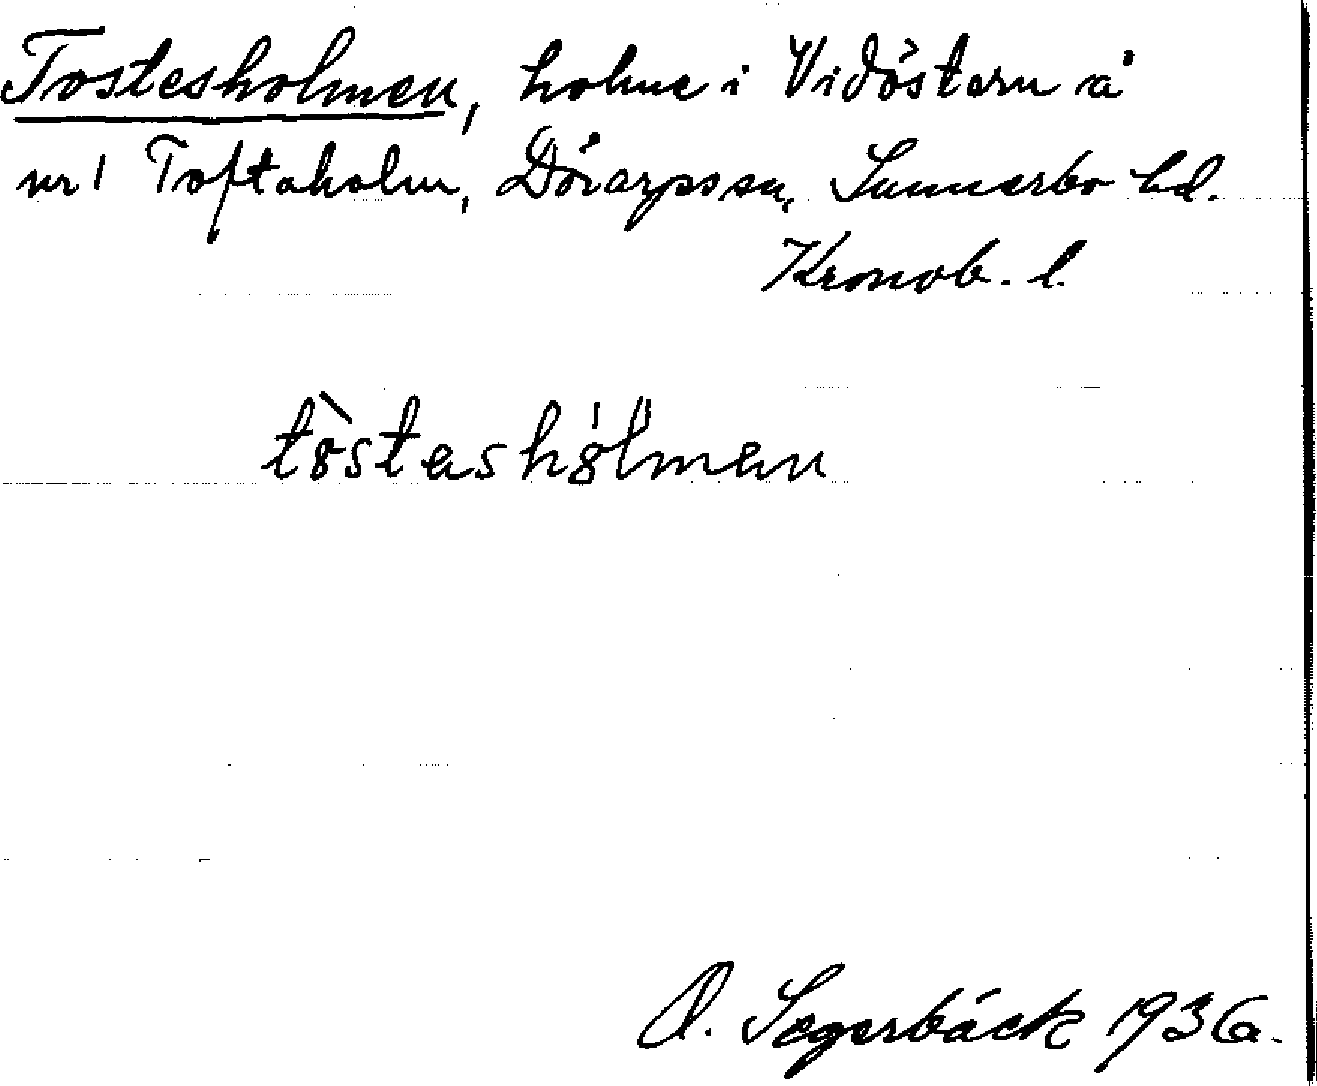 Tostesholmen, holme i Vidöstern å
nr 1 Toftaholm, Dörarps sn, Sunnerbo hd.
Kronob. l.
tòstashölman
O. Segerbäck 1936.